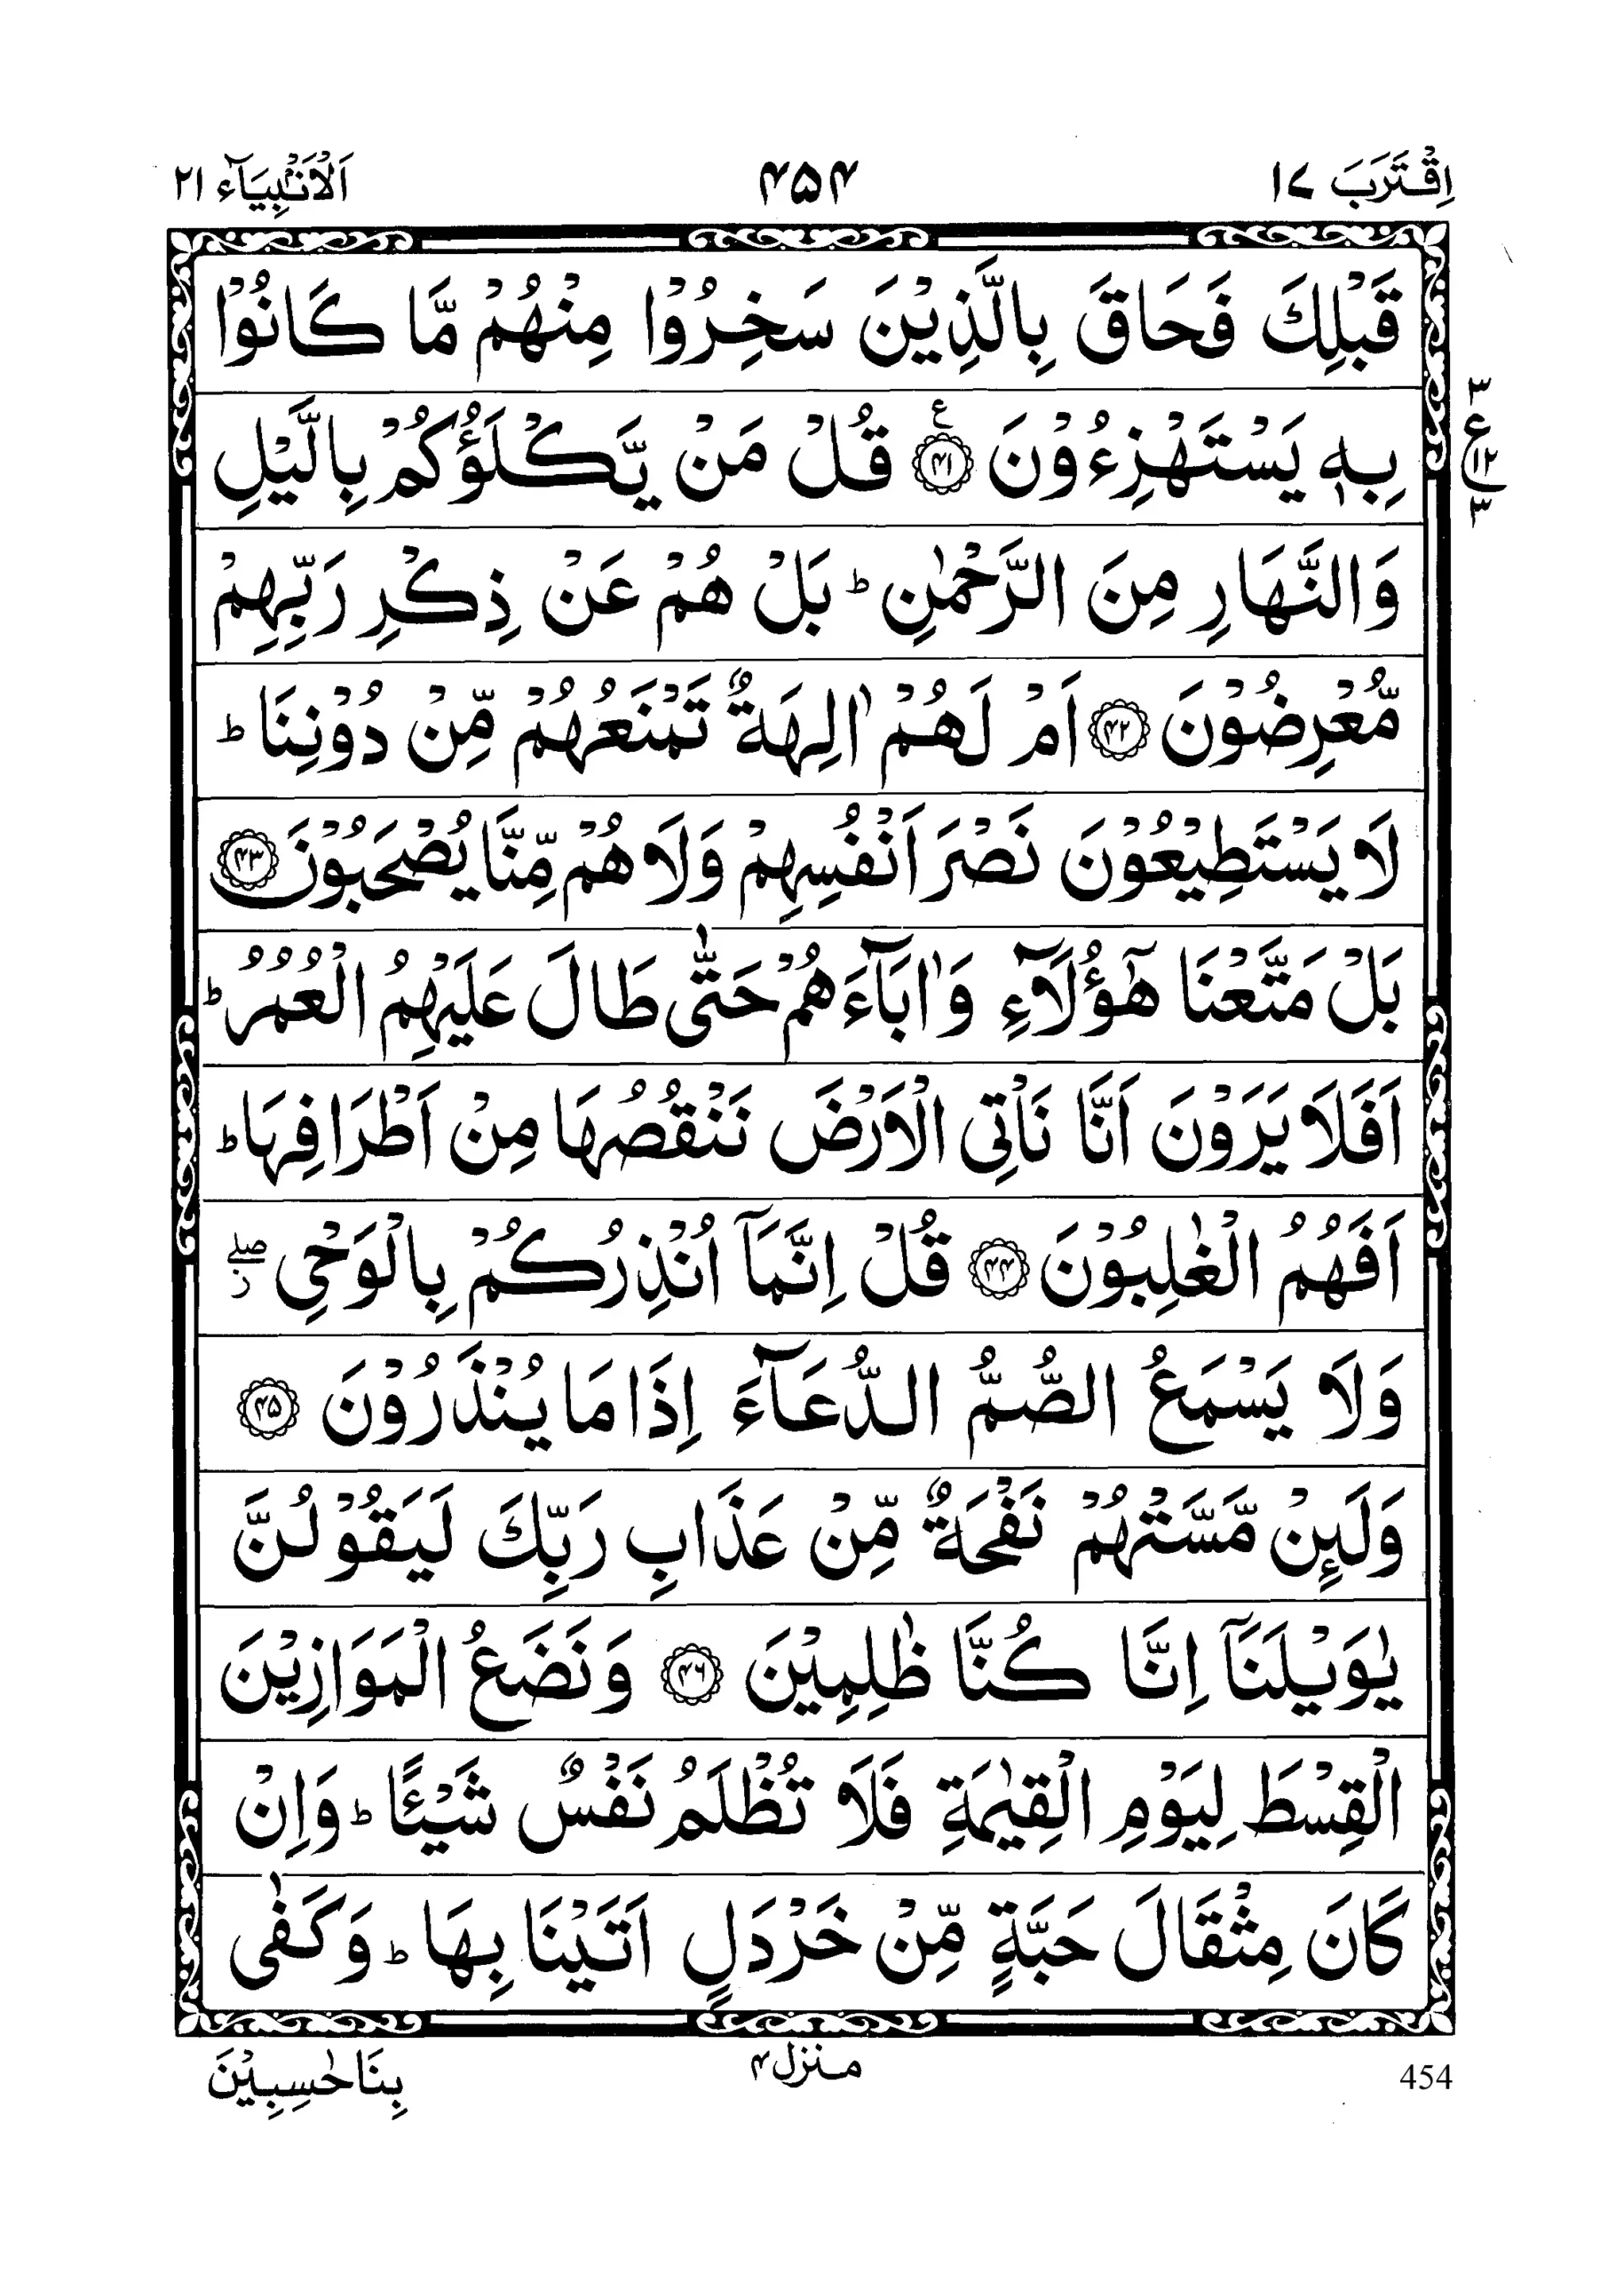 اِقْتَرَبَ ١٧ ۴۵۴ اَلْاَنْۢبِيَآء ٢١
قَبْلِكَ فَحَاقَ بِالَّذِيْنَ سَخِرُوْا مِنْهُمْ مَّا كَانُوْا
بِهٖ يَسْتَهْزِءُوْنَ ۴۱ ع قُلْ مَنْ يَّكْلَؤُكُمْ بِالَّيْلِ
٣ ع ١٢ ٣
وَالنَّهَارِ مِنَ الرَّحْمٰنِ ؕ بَلْ هُمْ عَنْ ذِكْرِ رَبِّهِمْ
مُّعْرِضُوْنَ ۴۲ اَمْ لَهُمْ اٰلِهَةٌ تَمْنَعُهُمْ مِّنْ دُوْنِنَا ؕ
لَا يَسْتَطِيْعُوْنَ نَصْرَ اَنْفُسِهِمْ وَلَا هُمْ مِّنَّا يُصْحَبُوْنَ ۴۳
بَلْ مَتَّعْنَا هٰٓؤُلَآءِ وَاٰبَآءَهُمْ حَتّٰى طَالَ عَلَيْهِمُ الْعُمُرُ ؕ
اَفَلَا يَرَوْنَ اَنَّا نَاْتِى الْاَرْضَ نَنْقُصُهَا مِنْ اَطْرَافِهَا ؕ
اَفَهُمُ الْغٰلِبُوْنَ ۴۴ قُلْ اِنَّمَآ اُنْذِرُكُمْ بِالْوَحْىِ ۖز
وَلَا يَسْمَعُ الصُّمُّ الدُّعَآءَ اِذَا مَا يُنْذَرُوْنَ ۴۵
وَلَئِنْ مَّسَّتْهُمْ نَفْحَةٌ مِّنْ عَذَابِ رَبِّكَ لَيَقُوْلُنَّ
يٰوَيْلَنَآ اِنَّا كُنَّا ظٰلِمِيْنَ ۴۶ وَنَضَعُ الْمَوَازِيْنَ
الْقِسْطَ لِيَوْمِ الْقِيٰمَةِ فَلَا تُظْلَمُ نَفْسٌ شَيْـًٔا ؕ وَاِنْ
كَانَ مِثْقَالَ حَبَّةٍ مِّنْ خَرْدَلٍ اَتَيْنَا بِهَا ؕ وَكَفٰى
454 منزل ۴ بِنَا حٰسِبِيْنَ